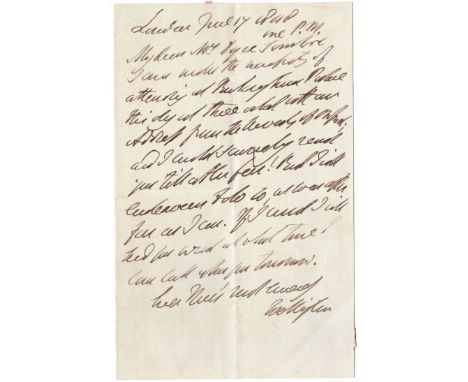 London June 17 1848
one P.M.
My dear Mrs Dyce Sombre
I am under the necessity of
attending at Buckingham Palace
this day at three o'clock with an
Address from the University of Oxford
and I could scarcely reach
you till after five! But I will
endeavour to do so, as soon after
five as I can. If I send I will
send you word at what time I
can call upon you tomorrow.
Ever Yours most sincerely
Wellington